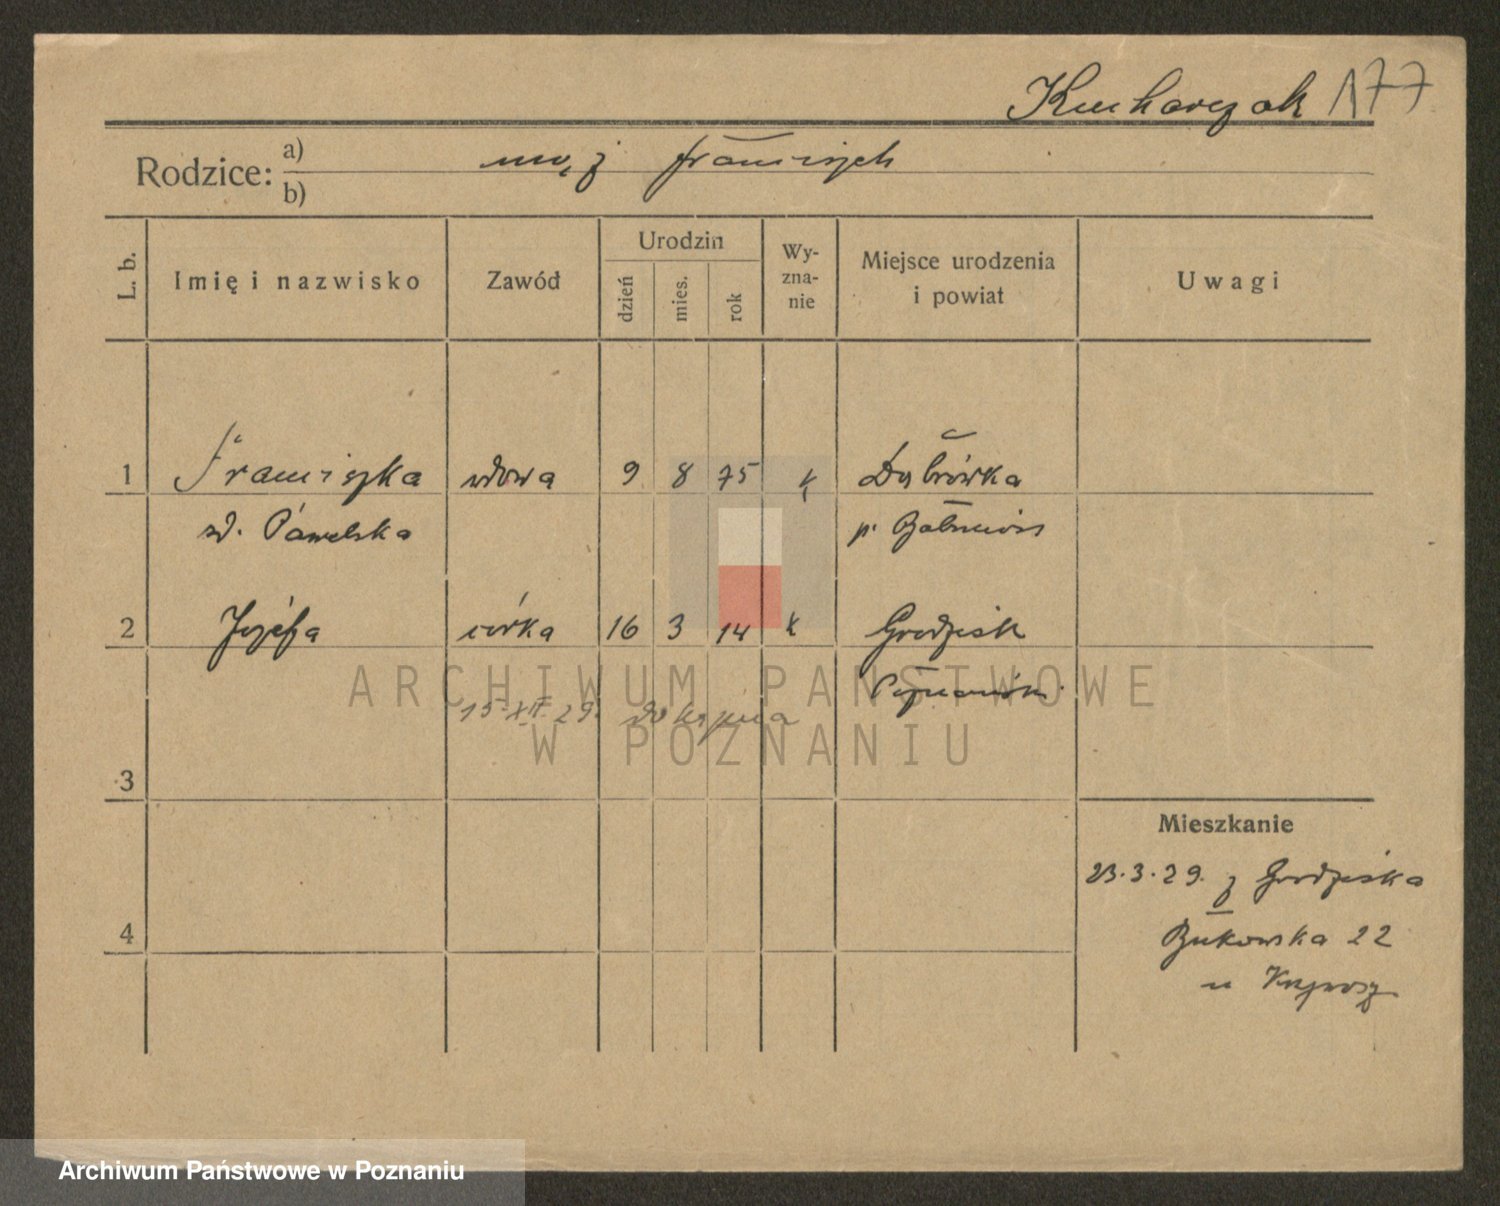 Kucharczak 177
Rodzice: a) b) mąż Franciszek
L. b. Imię i nazwisko Zawód Urodzin dzień mies. rok Wy-zna-nie Miejsce urodzenia i powiat Uwagi
1 Franciszka wdowa 9 8 75 k Dąbrówka
zd. Pawelska p.
2 Józefa córka 16 3 14 k Grodzisk
Poznański
15.XII.29.
3
Mieszkanie
23.3.29. z Grodziska
4 Bukowska 22
u
ARCHIWUM PAŃSTWOWE
W POZNANIU
Archiwum Państwowe w Poznaniu